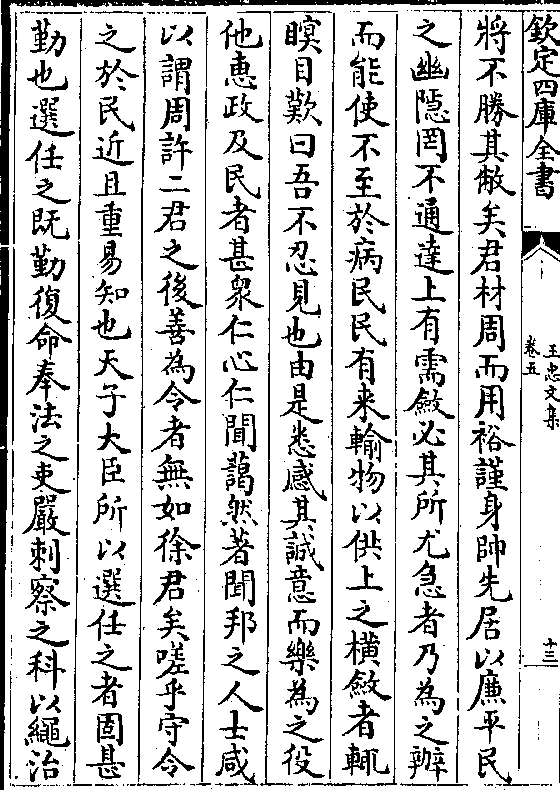 欽定四庫全書
王忠文集
卷五
十三
將不勝其敝矣君材周而用裕謹身帥先居以廉平民
之幽隱罔不通達上有需斂必其所尤急者乃為之辦
而能使不至於病民民有来輸物以供上之横斂者輒
瞑目歎曰吾不忍見也由是悉感其誠意而樂為之役
他惠政及民者甚衆仁心仁聞藹然著聞邦之人士咸
以謂周許二君之後善為令者無如徐君矣嗟乎守令
之於民近且重易知也天子大臣所以選任之者固甚
勤也選任之既勤復命奉法之吏嚴刺察之科以繩治